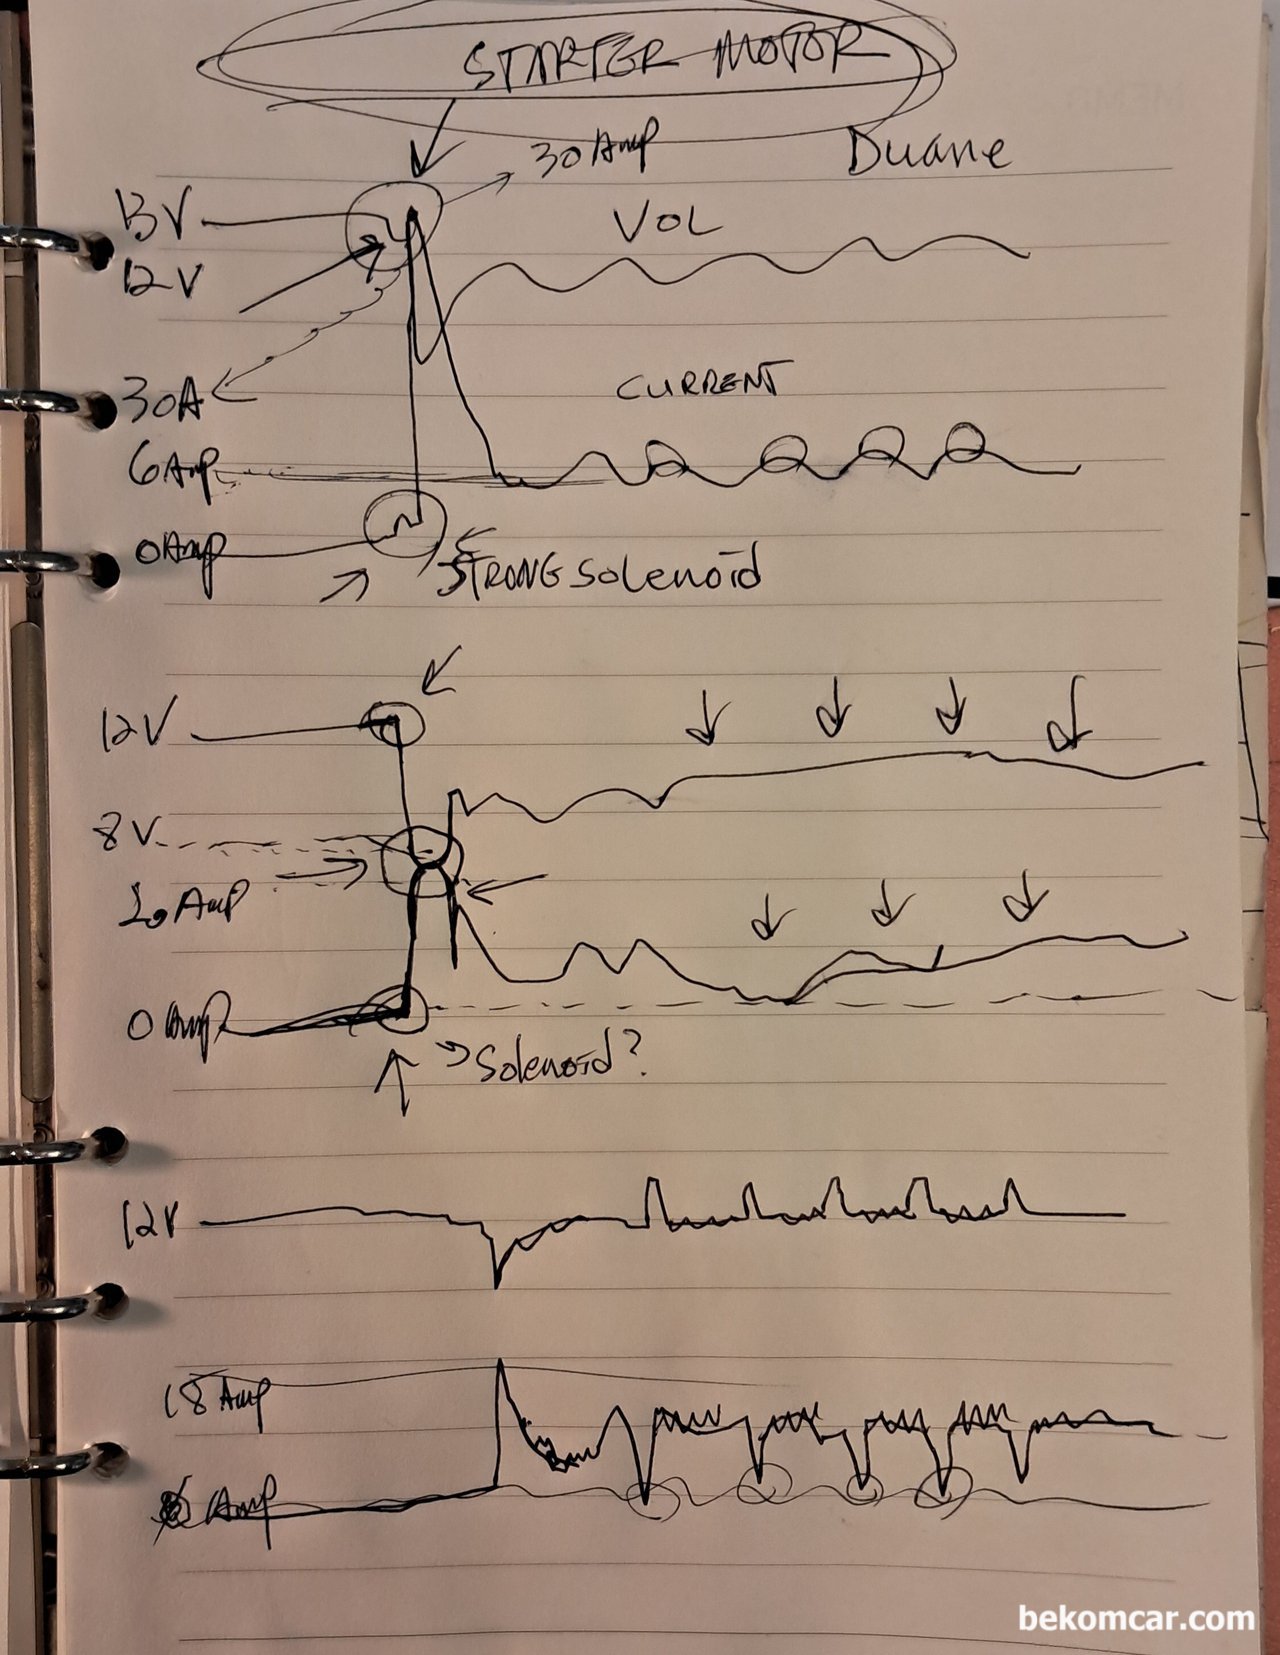 STARTER MOTOR
30 Amp
Duane
13V
VOL
12V
30A
CURRENT
6 Amp
0 Amp
STRONG Solenoid
12V
8V
0 Amp
Solenoid?
12V
18 Amp
Amp
bekomcar.com